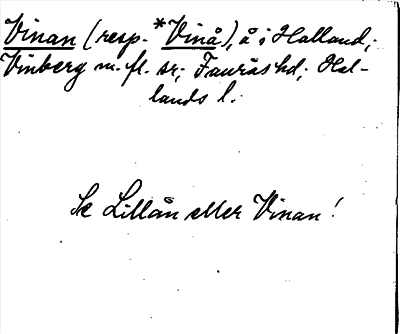 Vinan (resp. *Vinå), å i Halland;
Vinberg m. fl. sr; Faurås hd; Hal-
lands l.
Se Lillån eller Vinan!